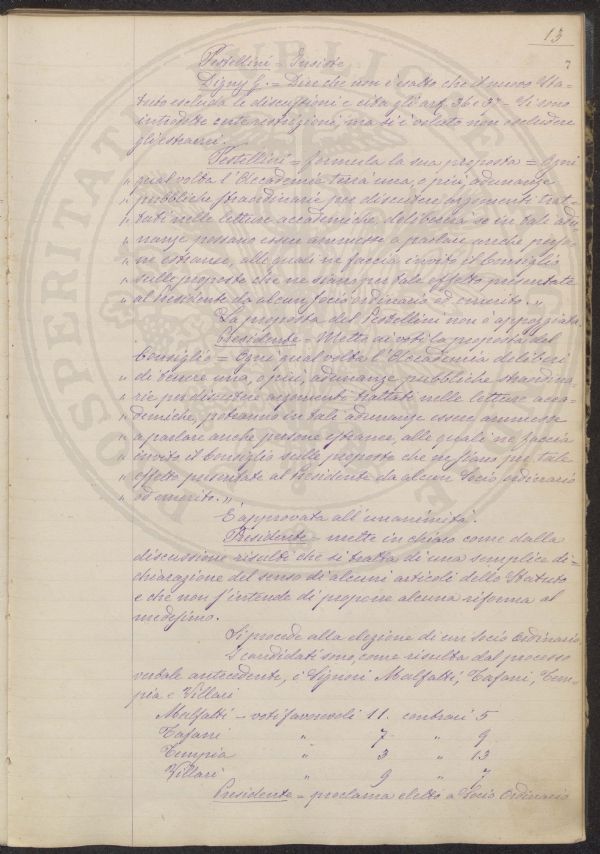 13
Pestellini = Insiste
Digny G. = Dice che non è esatto che il nuovo Sta-
tuto escluda le discussioni e cita gli art. 36 e 37 = Si sono
introdotte certe restrizioni, ma si è voluto non escludere
gli estranei.
Pestellini = formula la sua proposta = Ogni
" qual volta l'Accademia terrà una, o più, adunanze
" pubbliche straordinarie per discutere argomenti trat-
" tati nelle letture accademiche delibererà se in tali adu
" nanze possano essere ammesse a parlare anche perso-
" ne estranee, alle quali ne faccia invito il Consiglio
" sulle proposte che ne siano per tale effetto presentate
" al Presidente da alcun socio ordinario od emerito. "
La proposta del Pestellini non è appoggiata.
Presidente = Mette ai voti la proposta del
Consiglio = Ogni qual volta l'Accademia deliberi
" di tenere una, o più, adunanze pubbliche straordina-
" rie per discutere argomenti trattati nelle letture acca-
" demiche, potranno in tali adunanze essere ammesse
" a parlare anche persone estranee, alle quali ne faccia
" invito il Consiglio sulle proposte che ne siano per tale
" effetto presentate al Presidente da alcun Socio ordinario
" od emerito. "
È approvata all'unanimità.
Presidente = mette in chiaro come dalla
discussione risulti che si tratta di una semplice di-
chiarazione del senso di alcuni articoli dello Statuto
e che non s'intende di proporre alcuna riforma al
medesimo.
Si procede alla elezione di un Socio Ordinario.
I candidati sono, come risulta dal processo
verbale antecedente, i Signori Malfatti, Tafani, Tem-
pia e Villari
Malfatti – voti favorevoli 11. contrari 5
Tafani " 7 " 9
Tempia " 3 " 13
Villari " 9 " 7
Presidente = proclama eletto a Socio Ordinario
PROSPERITATI PUBLICAE